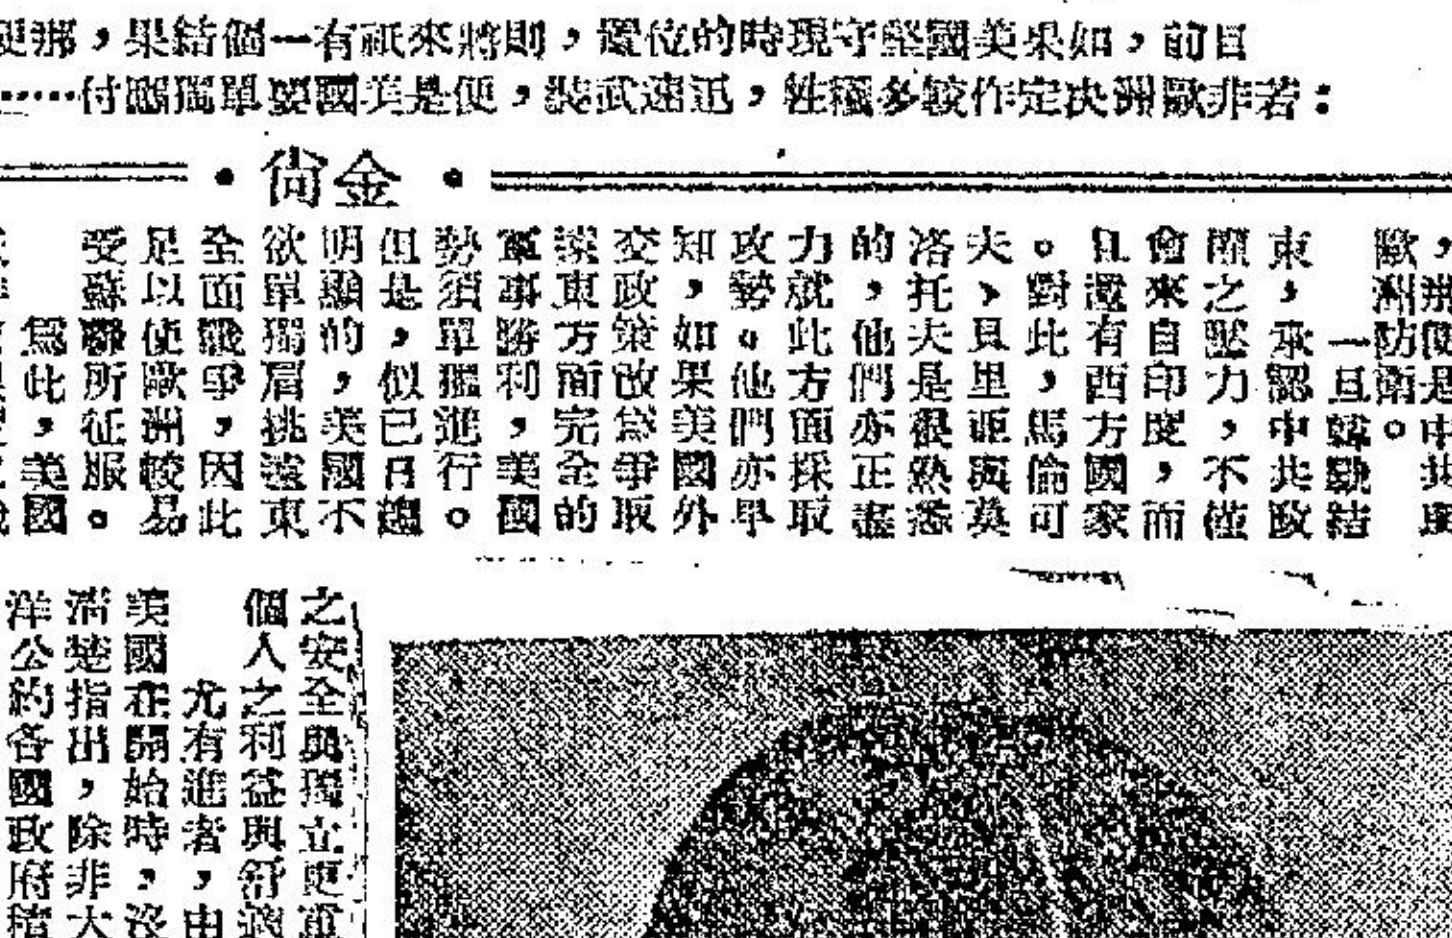 目前，如果美國堅守現時的位置，則將來祇有一個結果，那便
：若非歐洲決定作較多犧牲，迅速武裝，便是美國要單獨應付……
・金尙・
，那便是中共與
歐洲防衛。
一旦韓戰結
東，承認中共政
關之壓力，不僅
會來自印度，而
且還有西方國家
。對此，馬倫可
夫、貝里亞與莫
洛托夫是很熟悉
的，他們亦正盡
力就此方面採取
攻勢。他們亦早
知，如果美國外
交政策改爲爭取
遠東方面完全的
軍事勝利，美國
勢須單獨進行。
但是，似已日趨
明顯的，美國不
欲單獨肩挑遠東
全面戰爭，因此
足以使歐洲較易
受蘇聯所征服。
爲此，美國
之安全與獨立更重
個人之利益與舒適
尤有進者，由
美國在開始時，沒
清楚指出，除非大
洋公約各國政府積